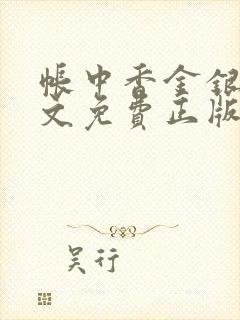 帐中香金银
文免費正版
吴行